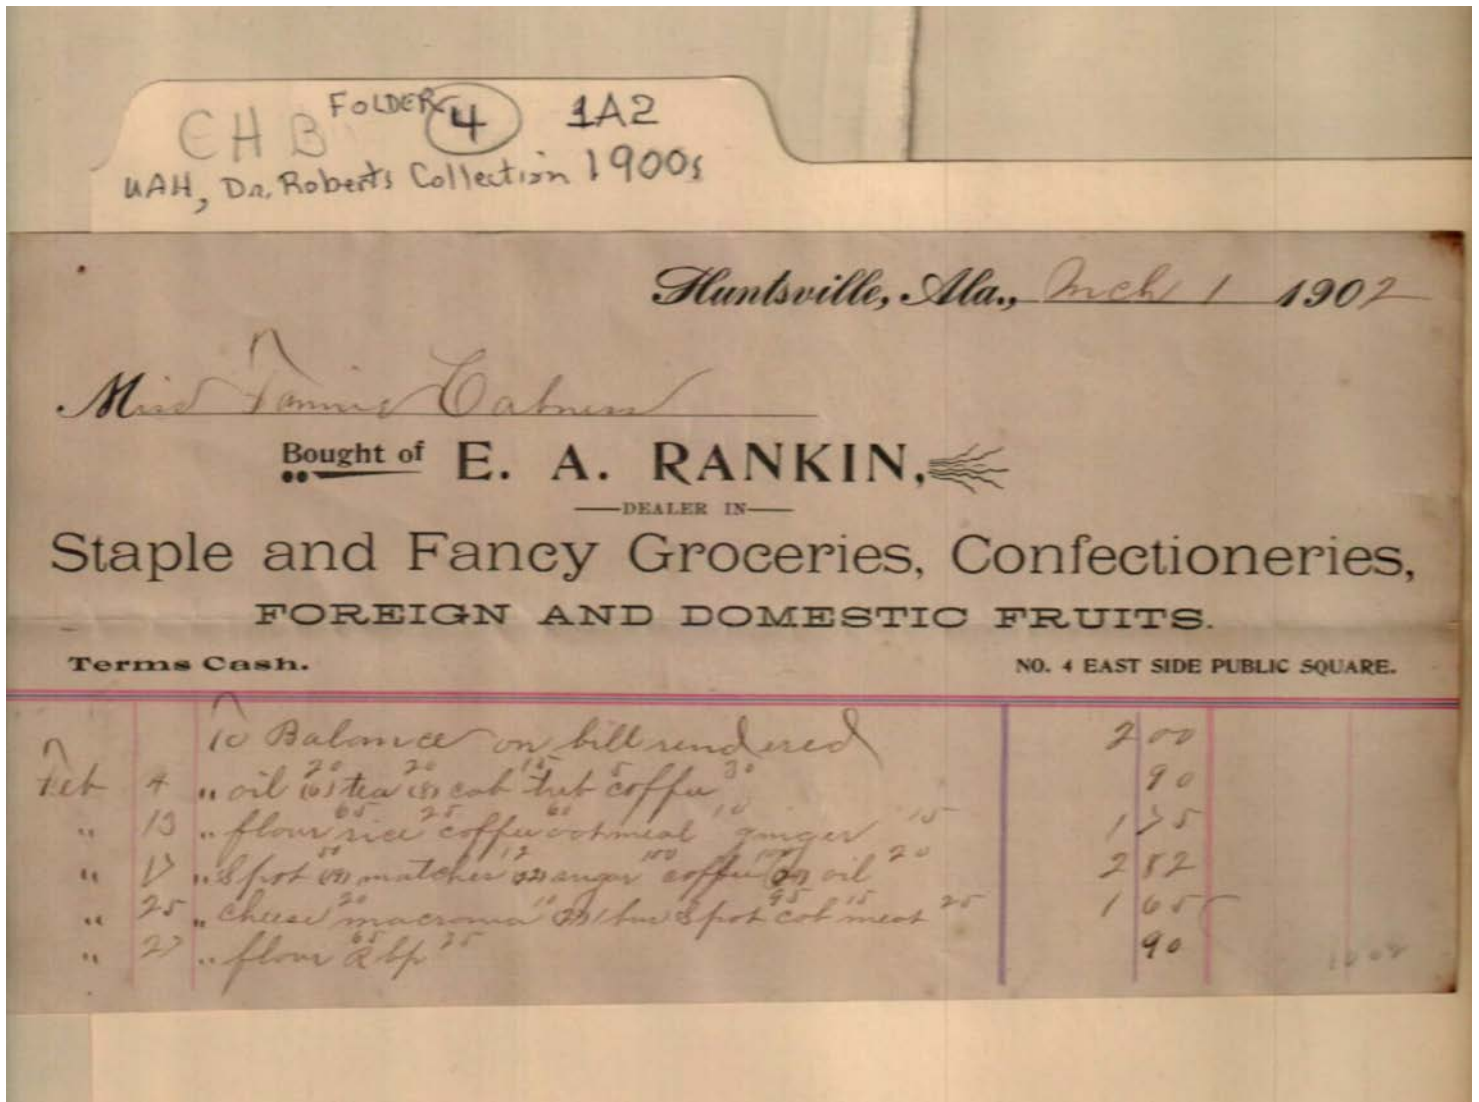 CHB FOLDER 4 1A2
UAH, Dr. Roberts Collection 1900s
Huntsville, Ala., Mch 1 1902
Miss Fannie Cabness
Bought of E. A. RANKIN,
DEALER IN
Staple and Fancy Groceries, Confectioneries,
FOREIGN AND DOMESTIC FRUITS.
Terms Cash. NO. 4 EAST SIDE PUBLIC SQUARE.
To Balance on bill rendered 2 00
Feb 4 " oil 20 tea 20 15 5 coffee 30 90
" 13 " flour 65 rice 25 coffee 60 oatmeal 10 ginger 15 1 75
" 17 " Spot 50 matches 12 sugar 100 coffee 100 oil 20 2 82
" 25 " cheese 20 10 Spot 95 15 meat 25 1 65
" 27 " flour 65 25 90